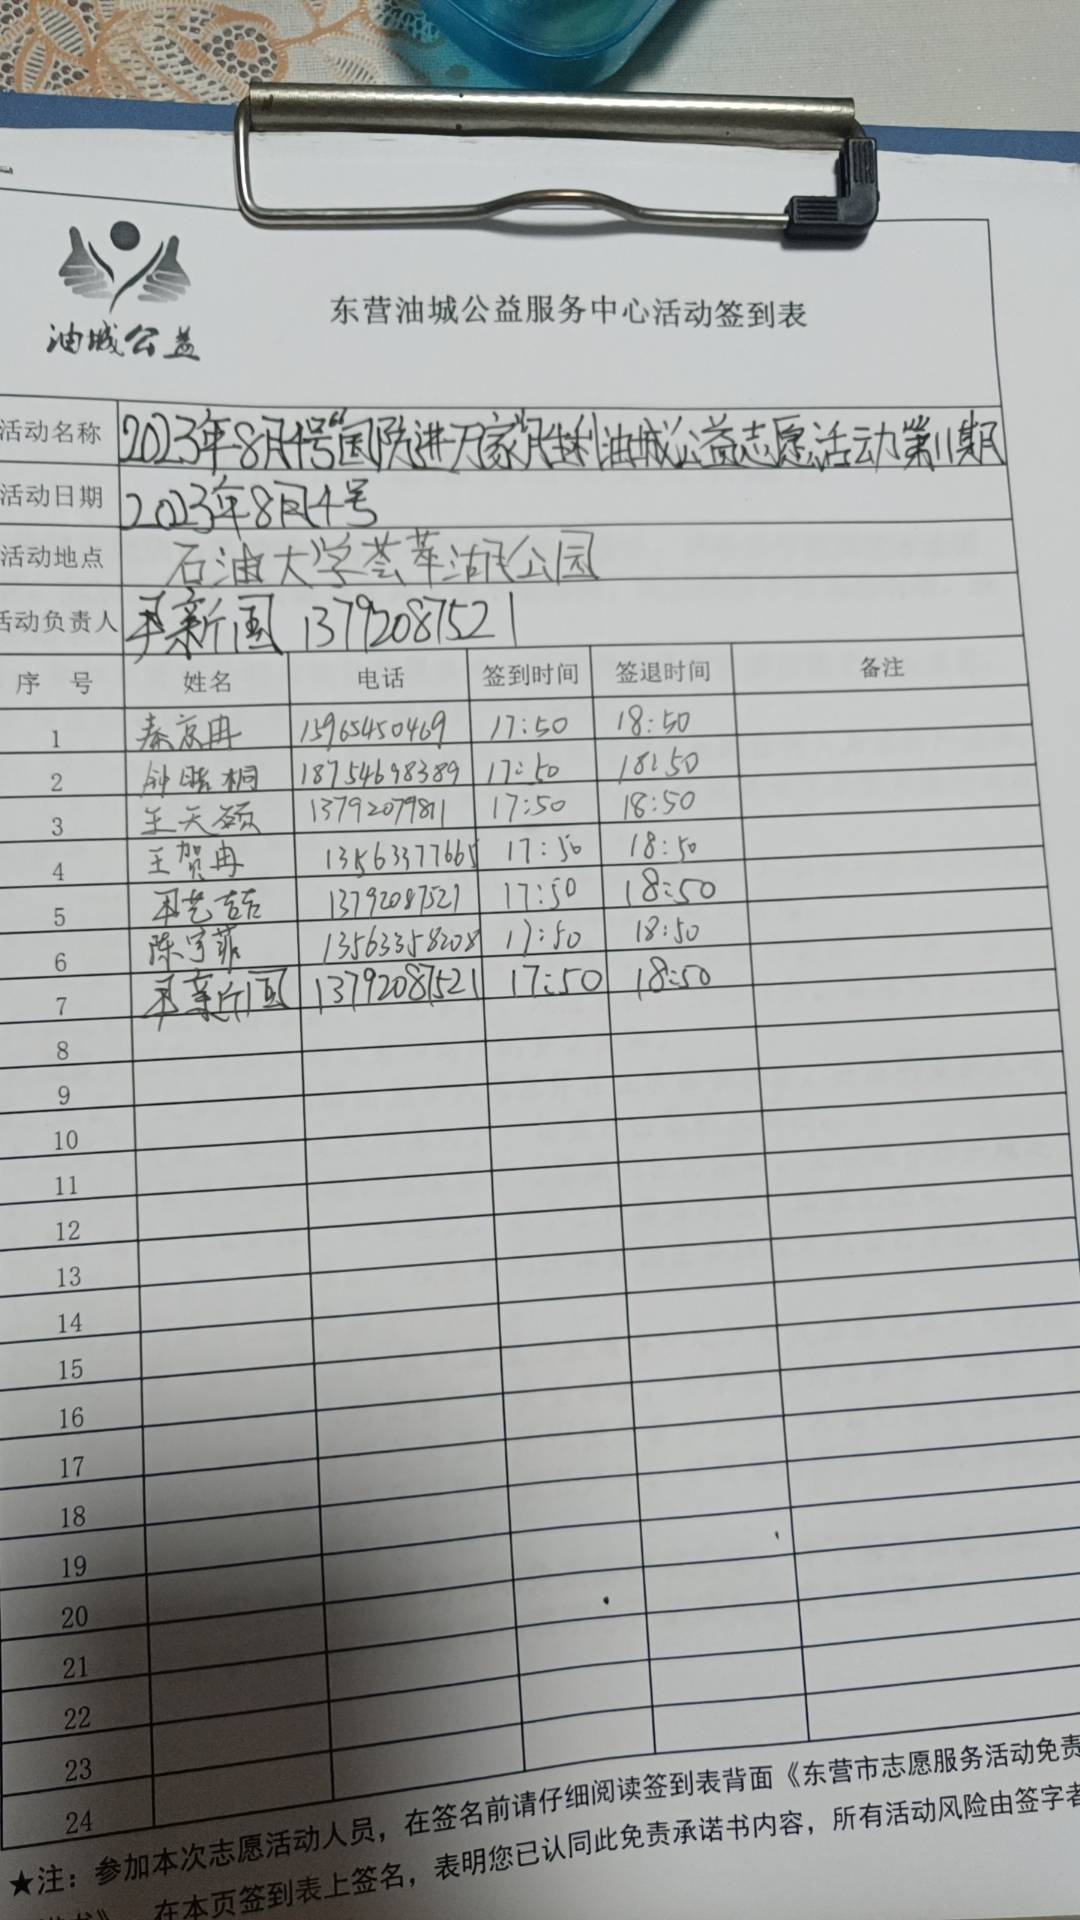 油城公益
东营油城公益服务中心活动签到表
活动名称 2023年8月4号“国防进万家”胜利油城公益志愿活动第11期
活动日期 2023年8月4号
活动地点 石油大学荟萃湖公园
活动负责人 新国 13792087521
序 号 姓名 电话 签到时间 签退时间 备注
1 秦京冉 15965450469 17:50 18:50
2 钟 桐 18754698389 17:50 18:50
3 王天硕 13792079811 17:50 18:50
4 王贺冉 13563377665 17:50 18:50
5 艺喆 13792087521 17:50 18:50
6 陈宇菲 13563358208 17:50 18:50
7 新国 13792087521 17:50 18:50
8
9
10
11
12
13
14
15
16
17
18
19
20
21
22
23
24
★注：参加本次志愿活动人员，在签名前请仔细阅读签到表背面《东营市志愿服务活动免责
在本页签到表上签名，表明您已认同此免责承诺书内容，所有活动风险由签字者